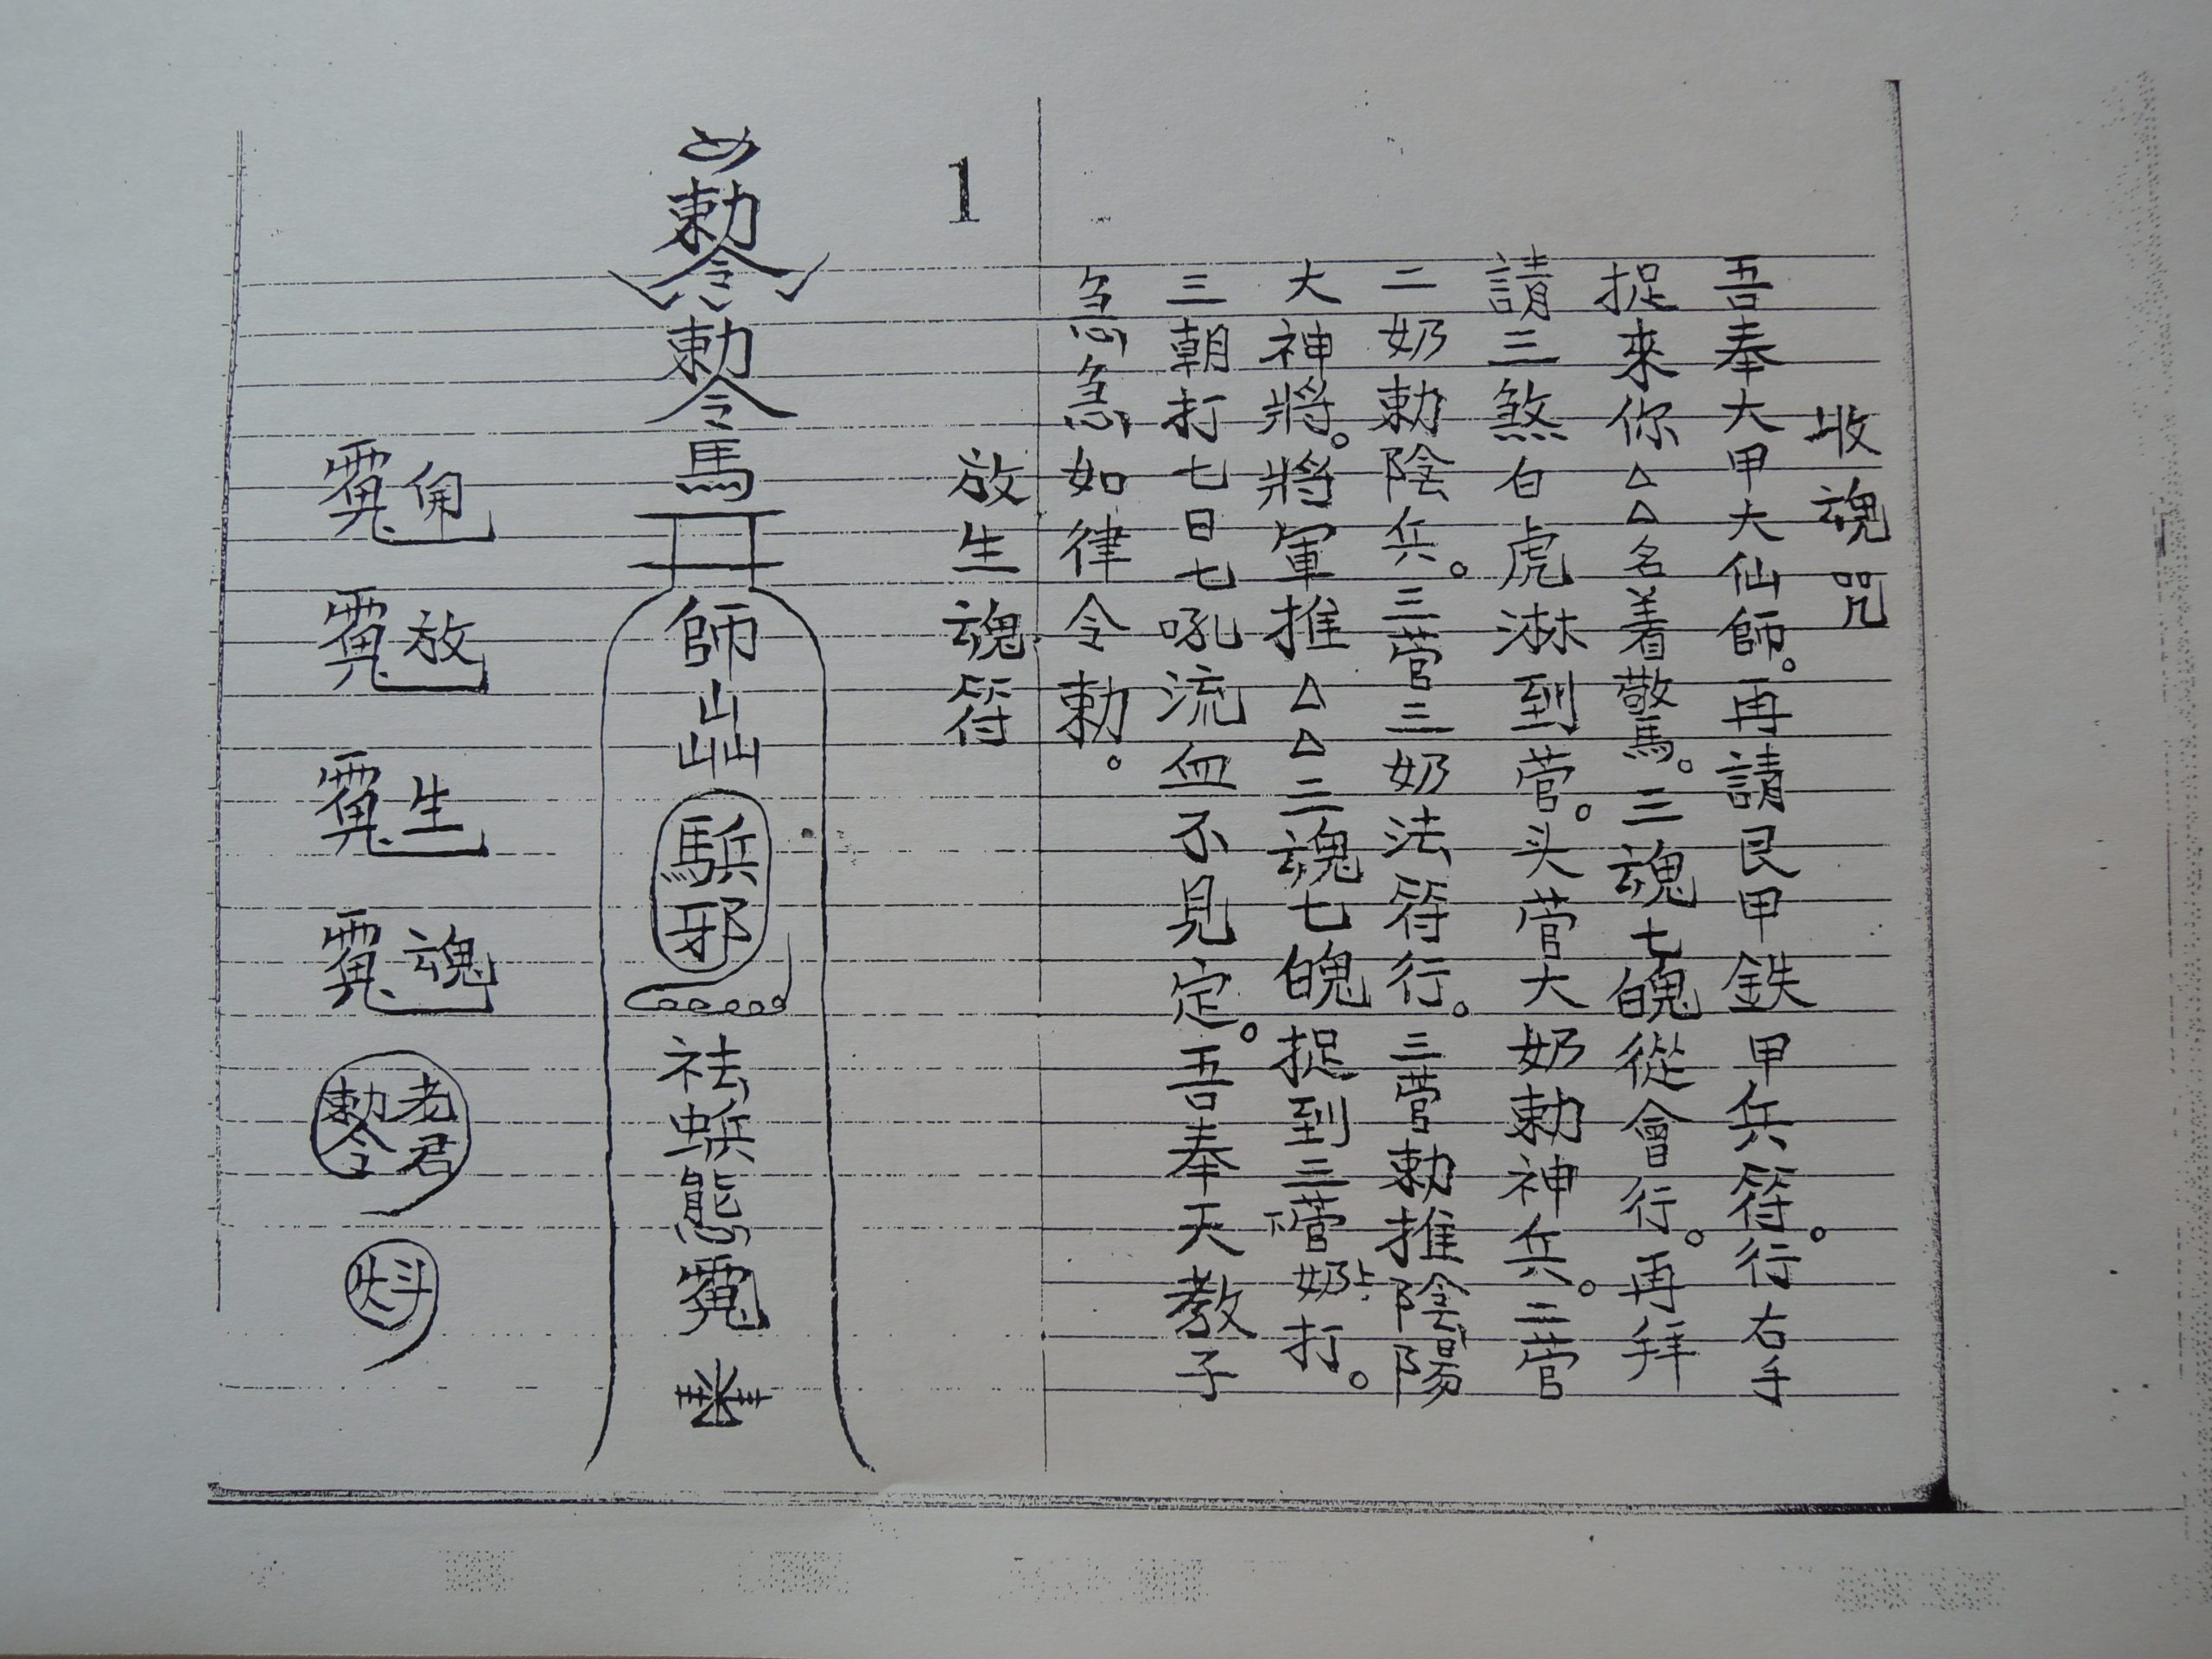 收魂咒
吾奉大甲大仙師。再請艮甲鉄甲兵符。行右手
捉來你△△名着驚。三魂七魄從會行。再拜
請三煞白虎淋到营。头营大奶勅神兵。二营
二奶勅陰兵。三营三奶法符行。三营勅推陰陽
大神將。將軍推△△三魂七魄捉到三营奶打。
三朝打七日七吼流血不見定。吾奉天教子
急急如律令勅。
1
放生魂符
勅令勅令馬
師
邪
祛
魂
放
生
魂
老君
勅令